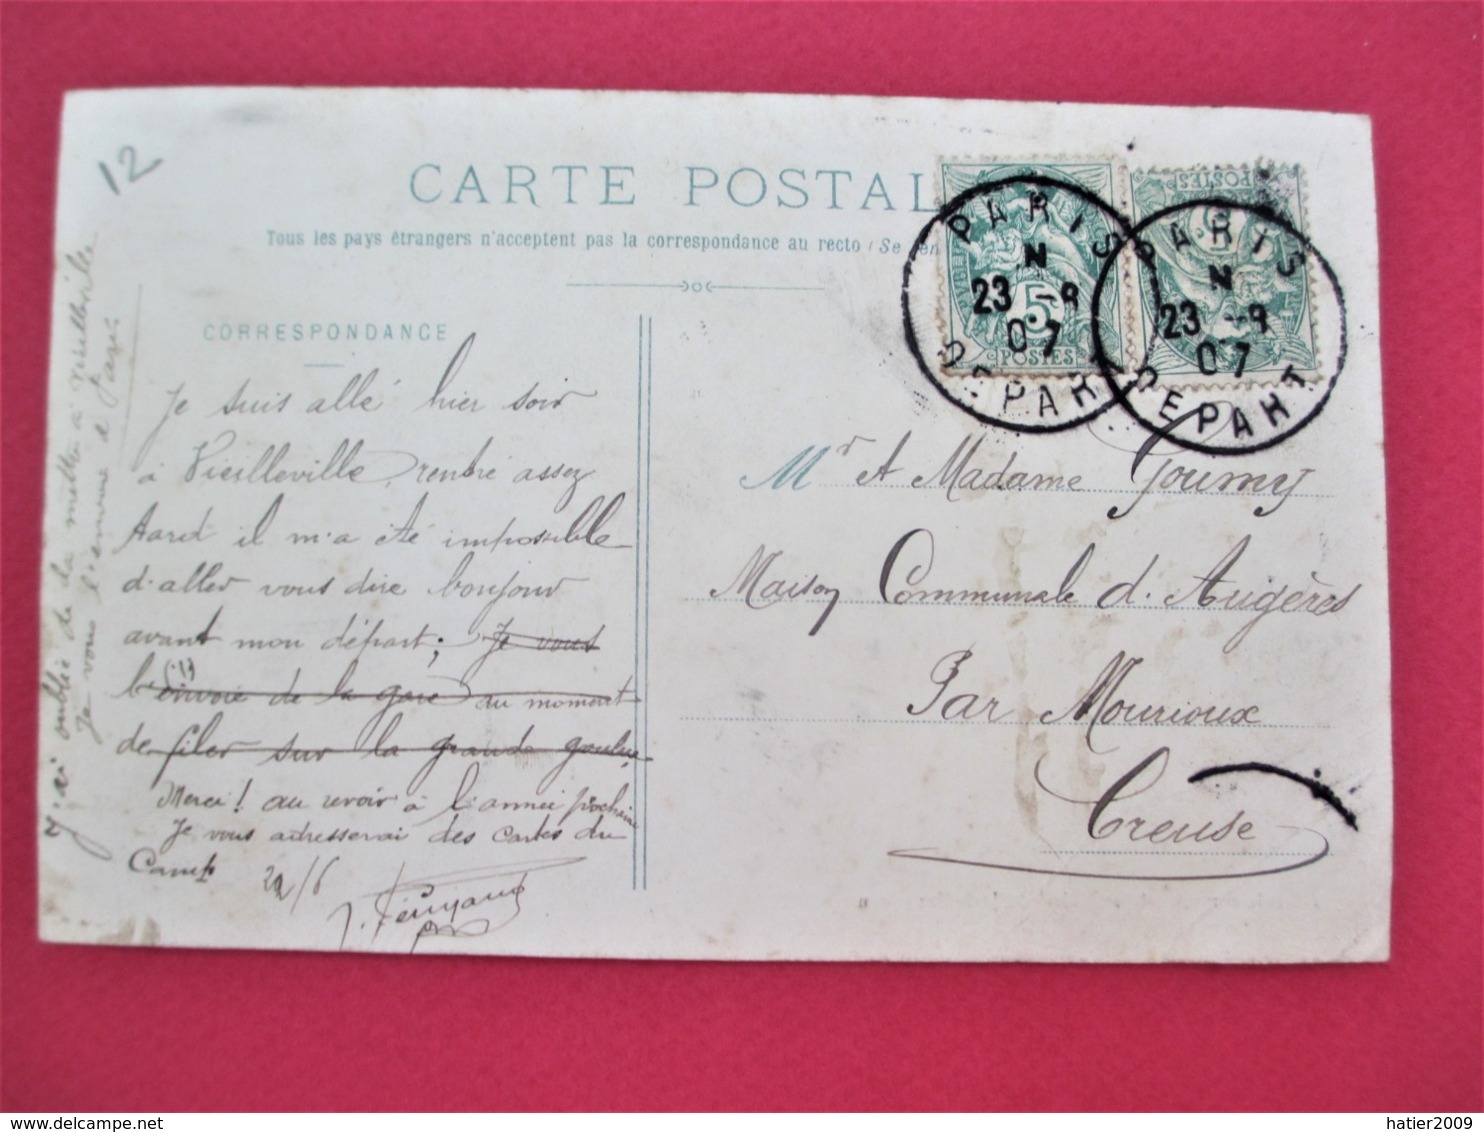 12
CARTE POSTAL
Tous les pays étrangers n'acceptent pas la correspondance au recto (Se
CORRESPONDANCE
Je suis allé hier soir
à Vieilleville, rentré assez
tard il m'a été impossible
d'aller vous dire bonjour
avant mon départ; Je vous
l'envoie de la gare au moment
de filer sur la grande
Merci! au revoir à l'année prochaine
Je vous adresserai des cartes du
Camp 22/6
J'ai oublié de la mettre à Vieilleville
Je vous l'envoie de Paris
POSTES
5
PARIS
N
23 -8
07
DEPART
POSTES
5
PARIS
N
23 -8
07
DEPART
Mr et Madame Goumy
Maison Communale d'Augères
Par Mourioux
Creuse
hatier2009